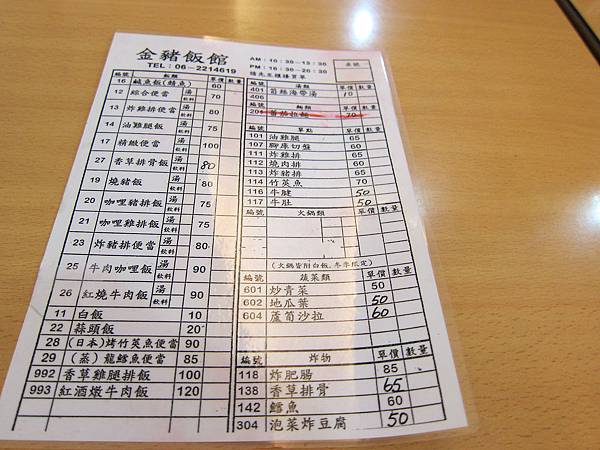 金豬飯館
TEL：06-2214619
AM：10：30-13：30
PM：16：30-20：30
請先至櫃檯買單
桌號
編號 飯類 單價 數量
16 鹹魚飯(鯖魚) 60
12 綜合便當 湯 飲料 70
13 炸雞排便當 湯 飲料 80
14 油雞腿飯 湯 飲料 75
17 精緻便當 湯 飲料 100
27 香草排骨飯 湯 飲料 80
19 燒豬飯 湯 飲料 80
20 咖哩豬排飯 湯 飲料 75
21 咖哩雞排飯 湯 飲料 75
23 炸豬排便當 湯 飲料 80
25 牛肉咖哩飯 湯 飲料 90
26 紅燒牛肉飯 湯 飲料 90
11 白飯 10
22 蒜頭飯 20
28 (日本)烤竹筴魚便當 90
29 (蒸)龍鱈魚便當 85
992 香草雞腿排飯 100
993 紅酒燉牛肉飯 120
編號 湯類 單價 數量
401 筍絲海帶湯 10
406
編號 麵類 單價 數量
201 蕃茄拉麵 70
編號 單點 單價 數量
101 油雞腿 65
107 腳庫切盤 60
111 炸雞排 65
112 燒肉排 60
113 炸豬排 65
114 竹筴魚 70
116 牛腱 50
117 牛肚 50
編號 火鍋類 單價 數量
(火鍋皆附白飯.冬季限定)
編號 蔬菜類 單價 數量
601 炒青菜 50
602 地瓜葉 50
604 蘆筍沙拉 60
編號 炸物 單價 數量
118 炸肥腸 85
138 香草排骨 65
142 鱈魚 60
304 泡菜炸豆腐 50